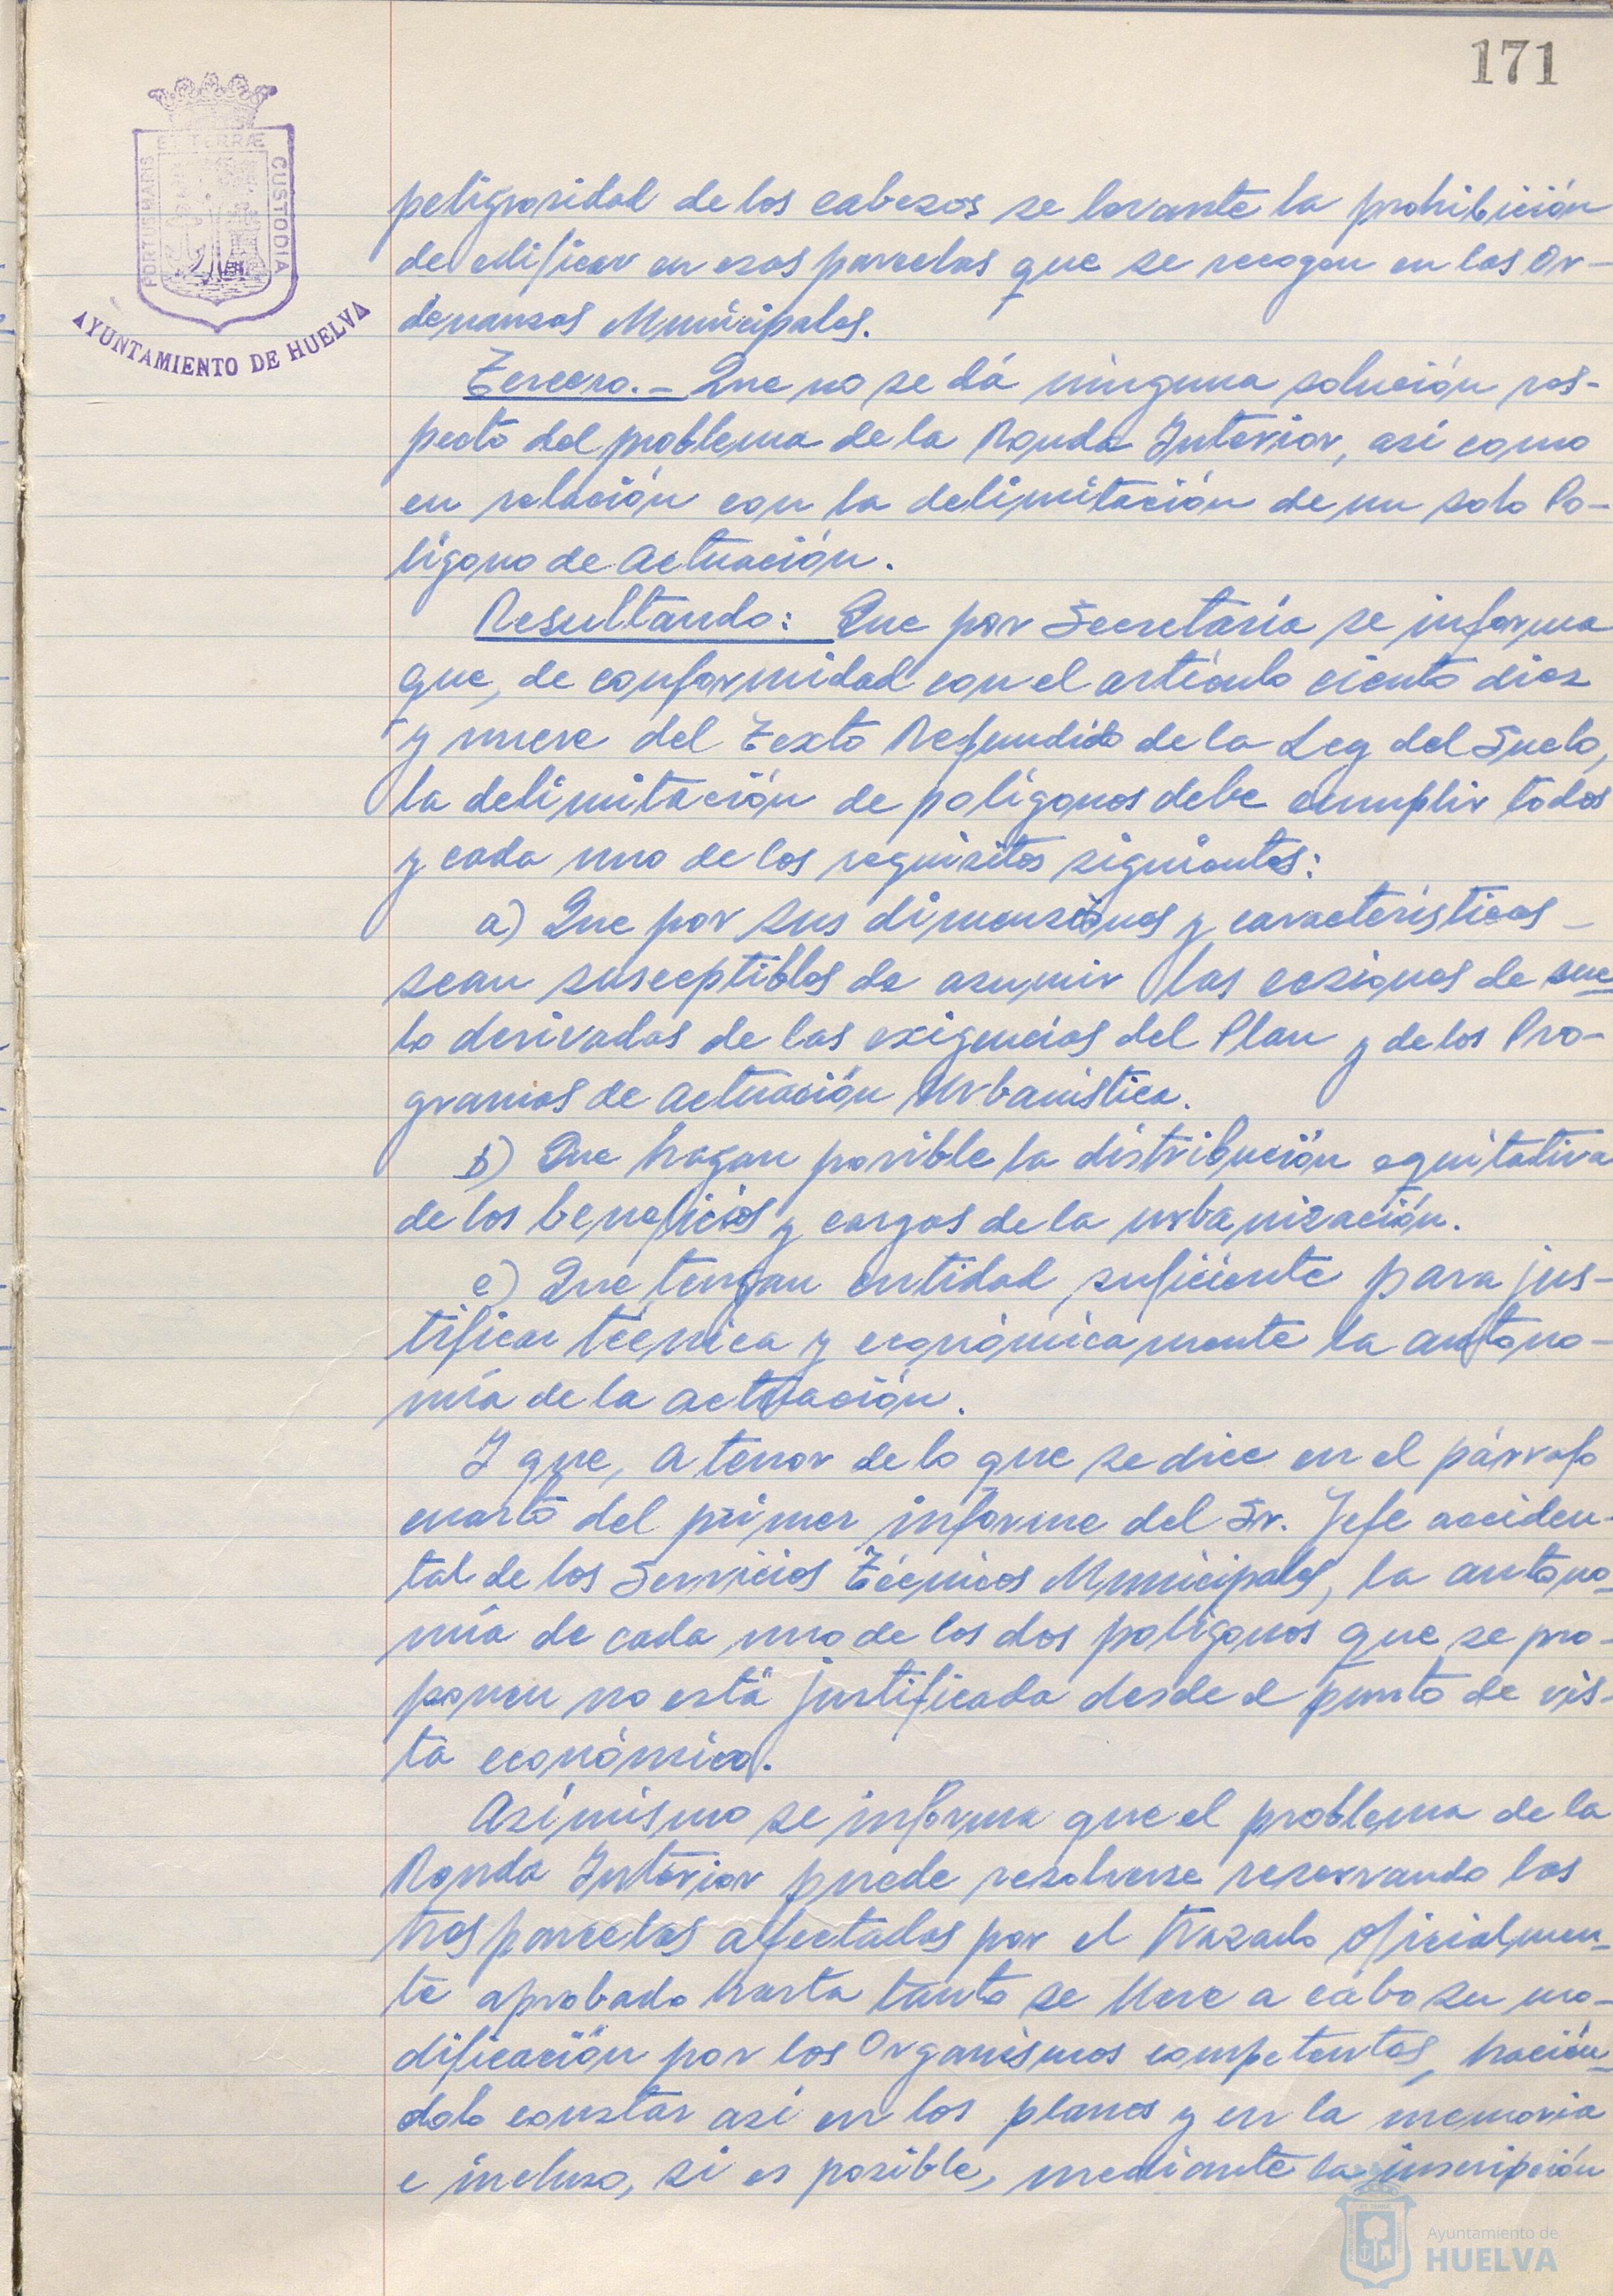 171
PORTUS MARIS ET TERRÆ CUSTODIA
AYUNTAMIENTO DE HUELVA
peligrosidad de los cabezos se levante la prohibición
de edificar en esas parcelas que se recogen en las Or-
denanzas Municipales.
Tercero.- Que no se dá ninguna solución res-
pecto del problema de la Ronda Interior, así como
en relación con la delimitación de un solo Po-
lígono de Actuación.
Resultando: Que por Secretaría se informa
que, de conformidad con el artículo ciento diez
y nueve del Texto Refundido de la Ley del Suelo,
la delimitación de polígonos debe cumplir todos
y cada uno de los requisitos siguientes:
a) Que por sus dimensiones y características -
sean susceptibles de asumir las cesiones de sue-
lo derivadas de las exigencias del Plan y de los Pro-
gramas de Actuación Urbanística.
b) Que hagan posible la distribución equitativa
de los beneficios y cargas de la urbanización.
c) Que tengan entidad suficiente para jus-
tificar técnica y económicamente la autono-
mía de la actuación.
Y que, a tenor de lo que se dice en el párrafo
cuarto del primer informe del Sr. Jefe acciden-
tal de los Servicios Técnicos Municipales, la autono-
mía de cada uno de los dos polígonos que se pro-
ponen no está justificada desde el punto de vis-
ta económico.
Asímismo se informa que el problema de la
Ronda Interior puede resolverse reservando las
tres parcelas afectadas por el trazado oficialmen-
te aprobado hasta tanto se lleve a cabo su mo-
dificación por los Organismos competentes, hacién-
dolo constar así en los planos y en la memoria
e incluso, si es posible, mediante la inscripción
Ayuntamiento de
HUELVA